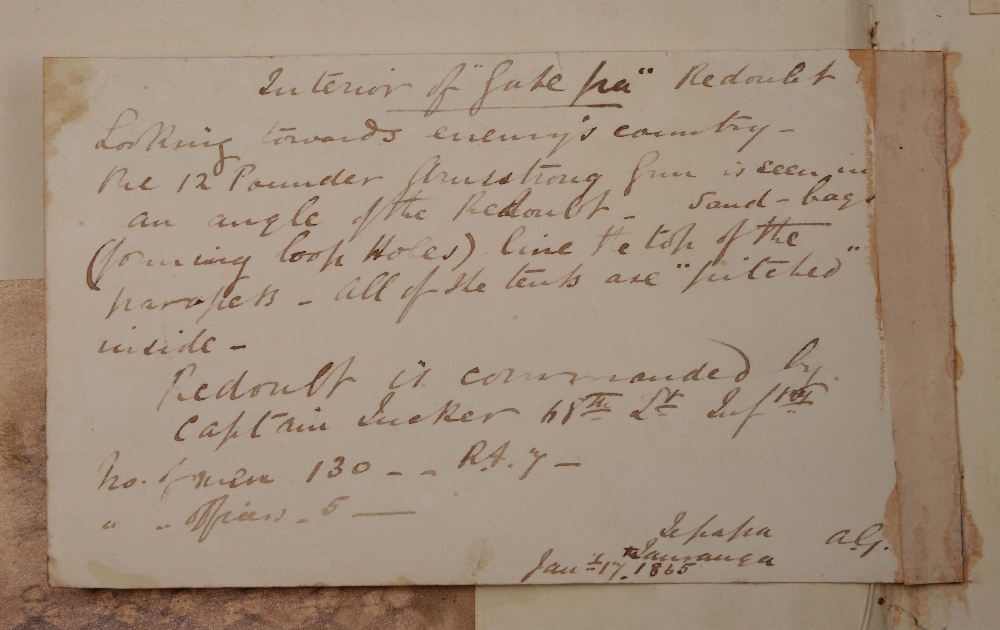 Interior of "Gate pa" Redoubt
Looking towards enemy's country -
The 12 Pounder Armstrong Gun is seen in
an angle of the Redoubt - Sand-bags
(forming loop Holes) line the top of the
parapets - All of the tents are "pitched"
inside -
Redoubt is commanded by
Captain Tucker 68th Lt Inftry
No. of men 130 - - R.A. 7 -
" " officers - 5 -
Te papa
Tauranga
A.G.
Jany 17. 1865